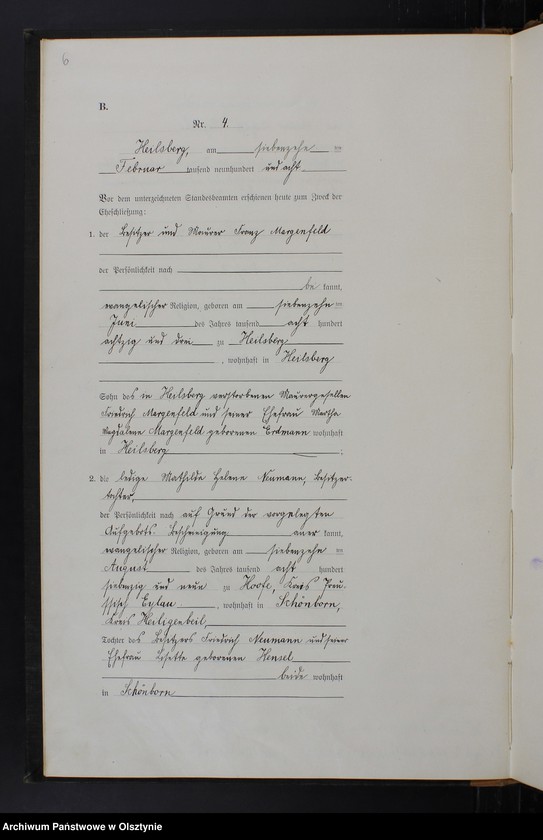 6
B.
Nr. 4.
Heilsberg, am siebenzehn ten
Februar tausend neunhundert und acht
Vor dem unterzeichneten Standesbeamten erschienen heute zum Zweck der
Eheschließung:
1. der Besitzer und Maurer Franz Margenfeld
der Persönlichkeit nach
be kannt,
evangelischer Religion, geboren am siebenzehn ten
Juni des Jahres tausend acht hundert
achtzig und drei zu Heilsberg
, wohnhaft in Heilsberg
Sohn des in Heilsberg verstorbenen Maurergesellen
Friedrich Margenfeld und seiner Ehefrau Martha
Magdalene Margenfeld geborenen Erdmann wohnhaft
in Heilsberg ;
2. die ledige Mathilde Helene Neumann, Besitzer-
tochter,
der Persönlichkeit nach auf Grund der vorgelegten
Aufgebots-Bescheinigung aner kannt,
evangelischer Religion, geboren am siebenzehn ten
August des Jahres tausend acht hundert
siebenzig und neun zu Hoofe, Kreis Preu-
ssisch Eylau, wohnhaft in Schönborn,
Kreis Heiligenbeil,
Tochter des Besitzers Friedrich Neumann und seiner
Ehefrau Lisette geborenen Hensel
beide wohnhaft
in Schönborn
Archiwum Państwowe w Olsztynie